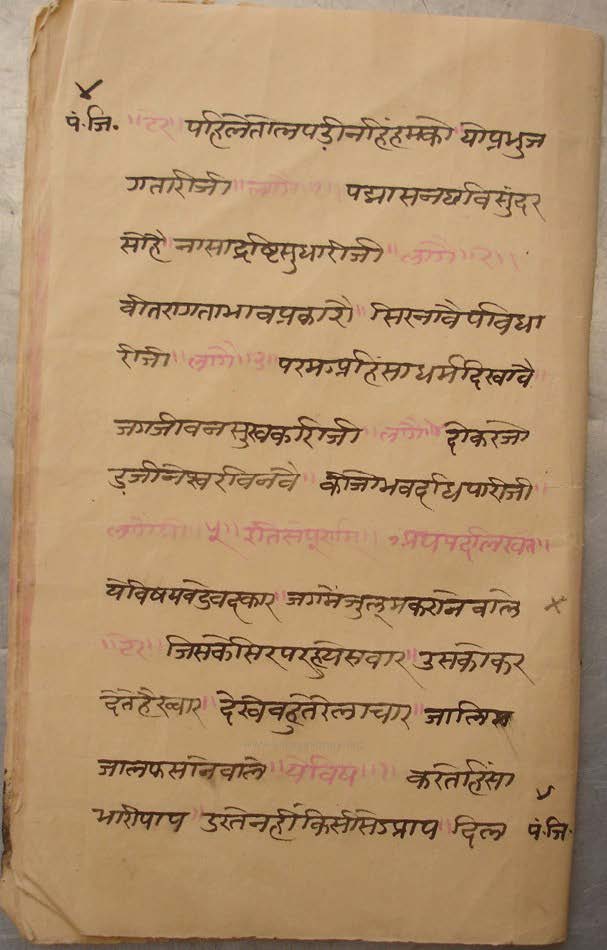 पं.जि. ॥टेर॥ पहिलेतोलपड़ीनहिंहमको ॥ योप्रभुज
गतारीजी ॥लागै॥१॥ पद्मासनछविसुंदर
सोहै ॥ नासाद्रष्टिसुधारीजी ॥लागै॥२॥
वीतरागताभावप्रकाशै ॥ सिरनावै
रीजी ॥लागै॥३॥ परमअहिंसाधर्मदिखावै
जगजीवनसुखकारीजी ॥लागै॥ दोकरजो
ड़जीनेस्वरविनवै ॥ कीजोभवदधिपारीजी॥
लागै॥ ५॥ इतिसंपूर्णम्॥ अथपदलिख्यते॥
येविषयबडेबदकार ॥ जगमैंजुलमकरानेवाले
॥टेर॥ जिसकेसिरपरहुयेसवार ॥ उसकोकर
देतेहैख्वार ॥ देखेबहुतेरेलाचार ॥ जालिम
जालफसानेवाले ॥येविष॥१॥ करतेहिंसा
भारीपाप ॥ डरतेनहींकिसीसेआप ॥ दिल पं.जि.